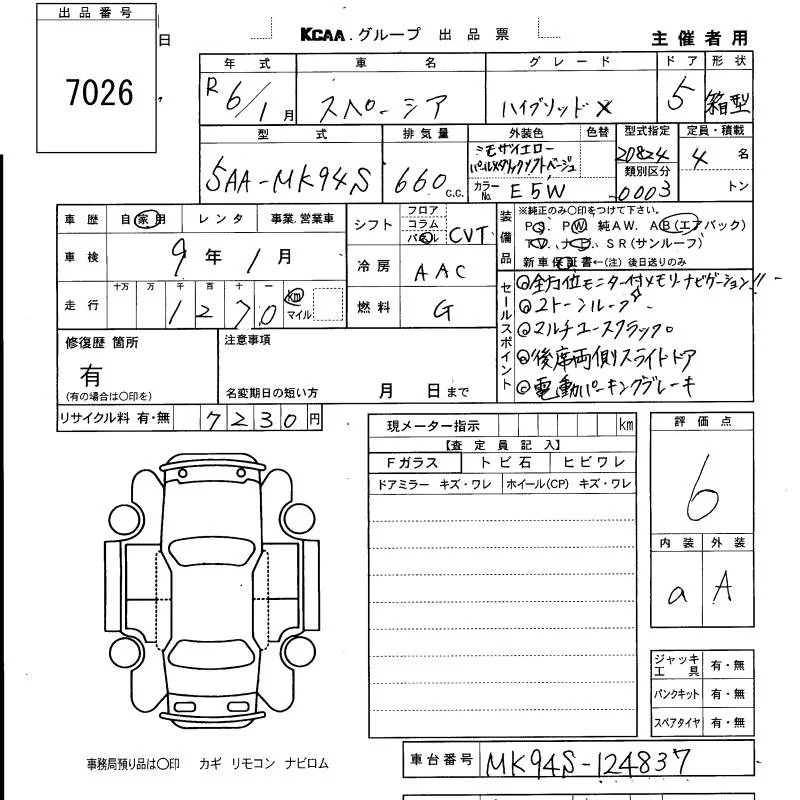 出品番号
7026
日
KCAA.グループ 出品票
主催者用
年式 車名 グレード ドア 形状
R6/1月 スペーシア ハイブリッドX 5 箱型
型式 排気量 外装色 色替 型式指定 定員・積載
5AA-MK94S 660c.c. ミモザイエロー パールメタリックソフトベージュ 20824 4名
カラーNo. E5W 類別区分 0003 トン
車歴 自家用 レンタ 事業.営業車
シフト フロア コラム パネル CVT
装備品 ※純正のみ○印をつけて下さい。
PS. PW 純AW. AB(エアバック)
TV. ナビ. SR(サンルーフ)
新車保証書←(注)後日送りのみ
車検 9年1月
冷房 AAC
走行 十万 万 千 百 十 一
1270 km マイル
燃料 G
セールスポイント
◎全方位モニター付メモリーナビゲーション!!
◎2トーンルーフ
◎マルチユースフラップ。
◎後席両側スライドドア
◎電動パーキングブレーキ
修復歴 箇所
有
(有の場合は○印を)
注意事項
名変期日の短い方 月 日まで
リサイクル料 有・無 7230円
現メーター指示 km
【査定員記入】
Fガラス トビ石 ヒビワレ
ドアミラー キズ・ワレ ホイール(CP) キズ・ワレ
評価点
6
内装 外装
a A
ジャッキ工具 有・無
パンクキット 有・無
スペアタイヤ 有・無
事務局預り品は○印 カギ リモコン ナビロム
車台番号 MK94S-124837